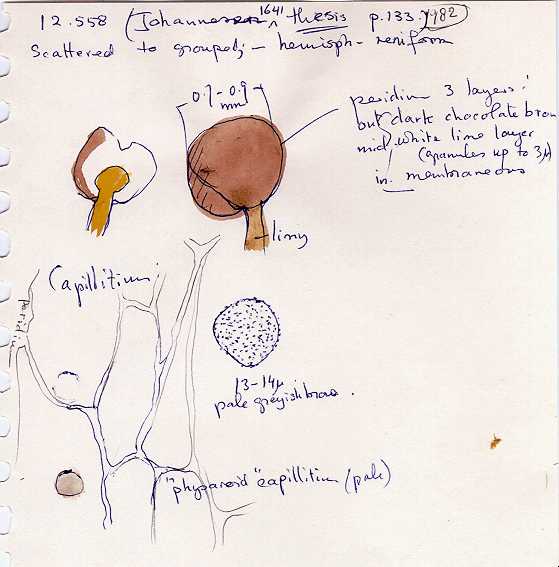 12.558 (Johannesen 1641 thesis p.133. 1982)
Scattered to grouped; - hemisph - reniform
0.7 - 0.9
mm
peridium 3 layers:
out dark chocolate brown
mid. white lime layer
(granules up to 3µ)
in. membraneous
limy
Capillitium:
peridium
13-14µ
pale greyish brown.
"physaroid" capillitium (pale)